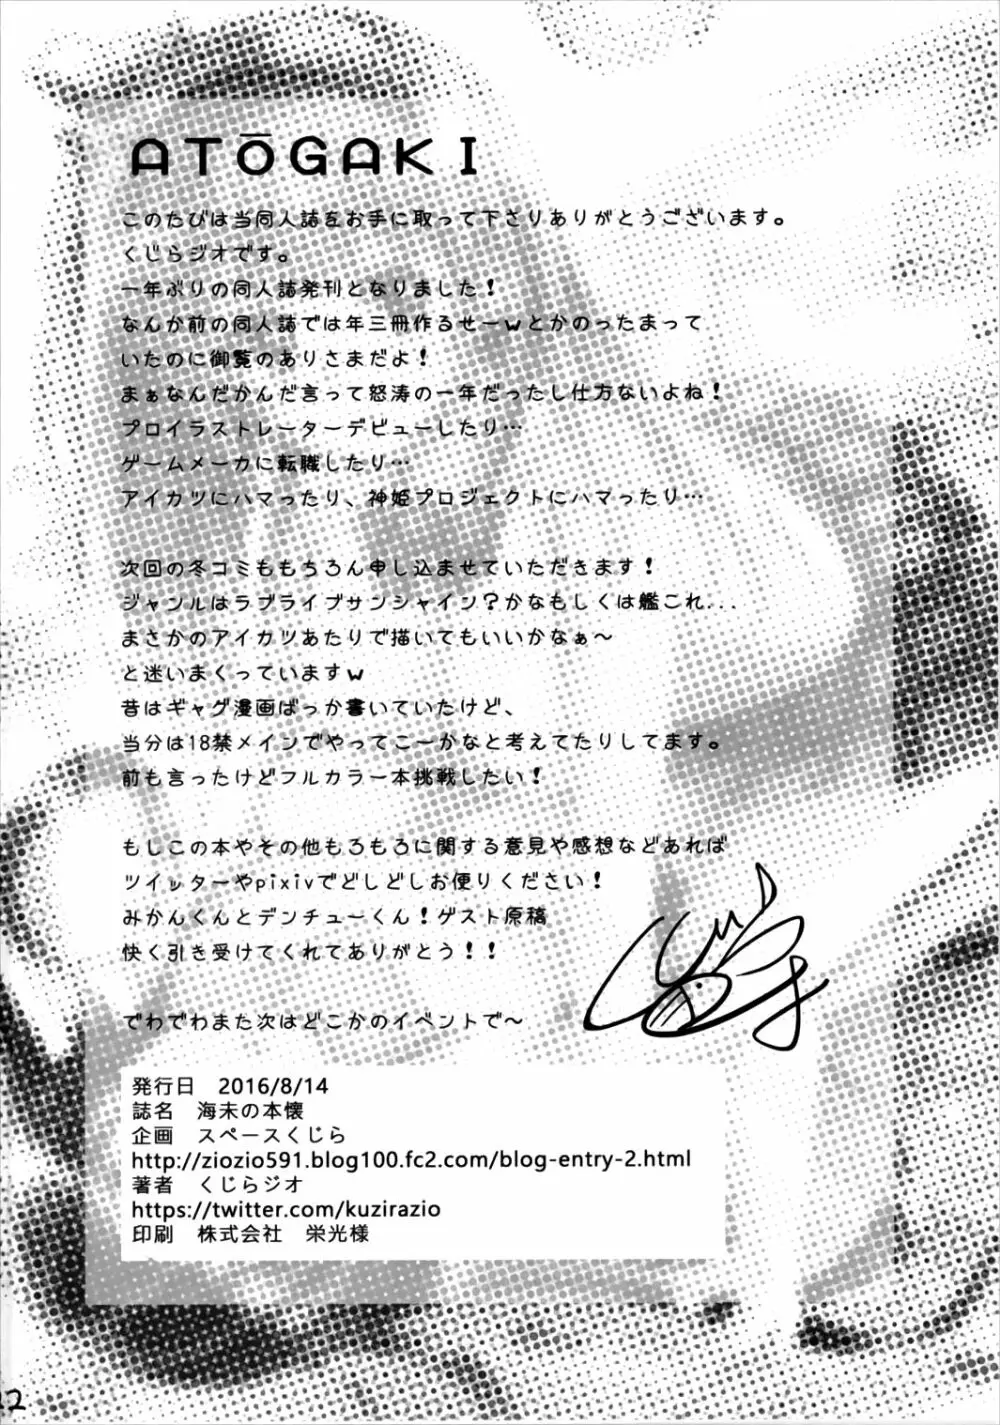 ATŌGAKI
このたびは当同人誌をお手に取って下さりありがとうございます。
くじらジオです。
一年ぶりの同人誌発刊となりました!
なんか前の同人誌では年三冊作るせーwとかのったまって
いたのに御覧のありさまだよ!
まぁなんだかんだ言って怒涛の一年だったし仕方ないよね!
プロイラストレーターデビューしたり…
ゲームメーカに転職したり…
アイカツにハマったり、神姫プロジェクトにハマったり…
次回の冬コミももちろん申し込ませていただきます!
ジャンルはラブライブサンシャイン?かなもしくは艦これ...
まさかのアイカツあたりで描いてもいいかなぁ～
と迷いまくっていますw
昔はギャグ漫画ばっか書いていたけど、
当分は18禁メインでやってこーかなと考えてたりしてます。
前も言ったけどフルカラー本挑戦したい!
もしこの本やその他もろもろに関する意見や感想などあれば
ツイッターやpixivでどしどしお便りください!
みかんくんとデンチューくん!ゲスト原稿
快く引き受けてくれてありがとう!!
でわでわまた次はどこかのイベントで～
発行日　2016/8/14
誌名　海未の本懐
企画　スペースくじら
http://ziozio591.blog100.fc2.com/blog-entry-2.html
著者　くじらジオ
https://twitter.com/kuzirazio
印刷　株式会社　栄光様